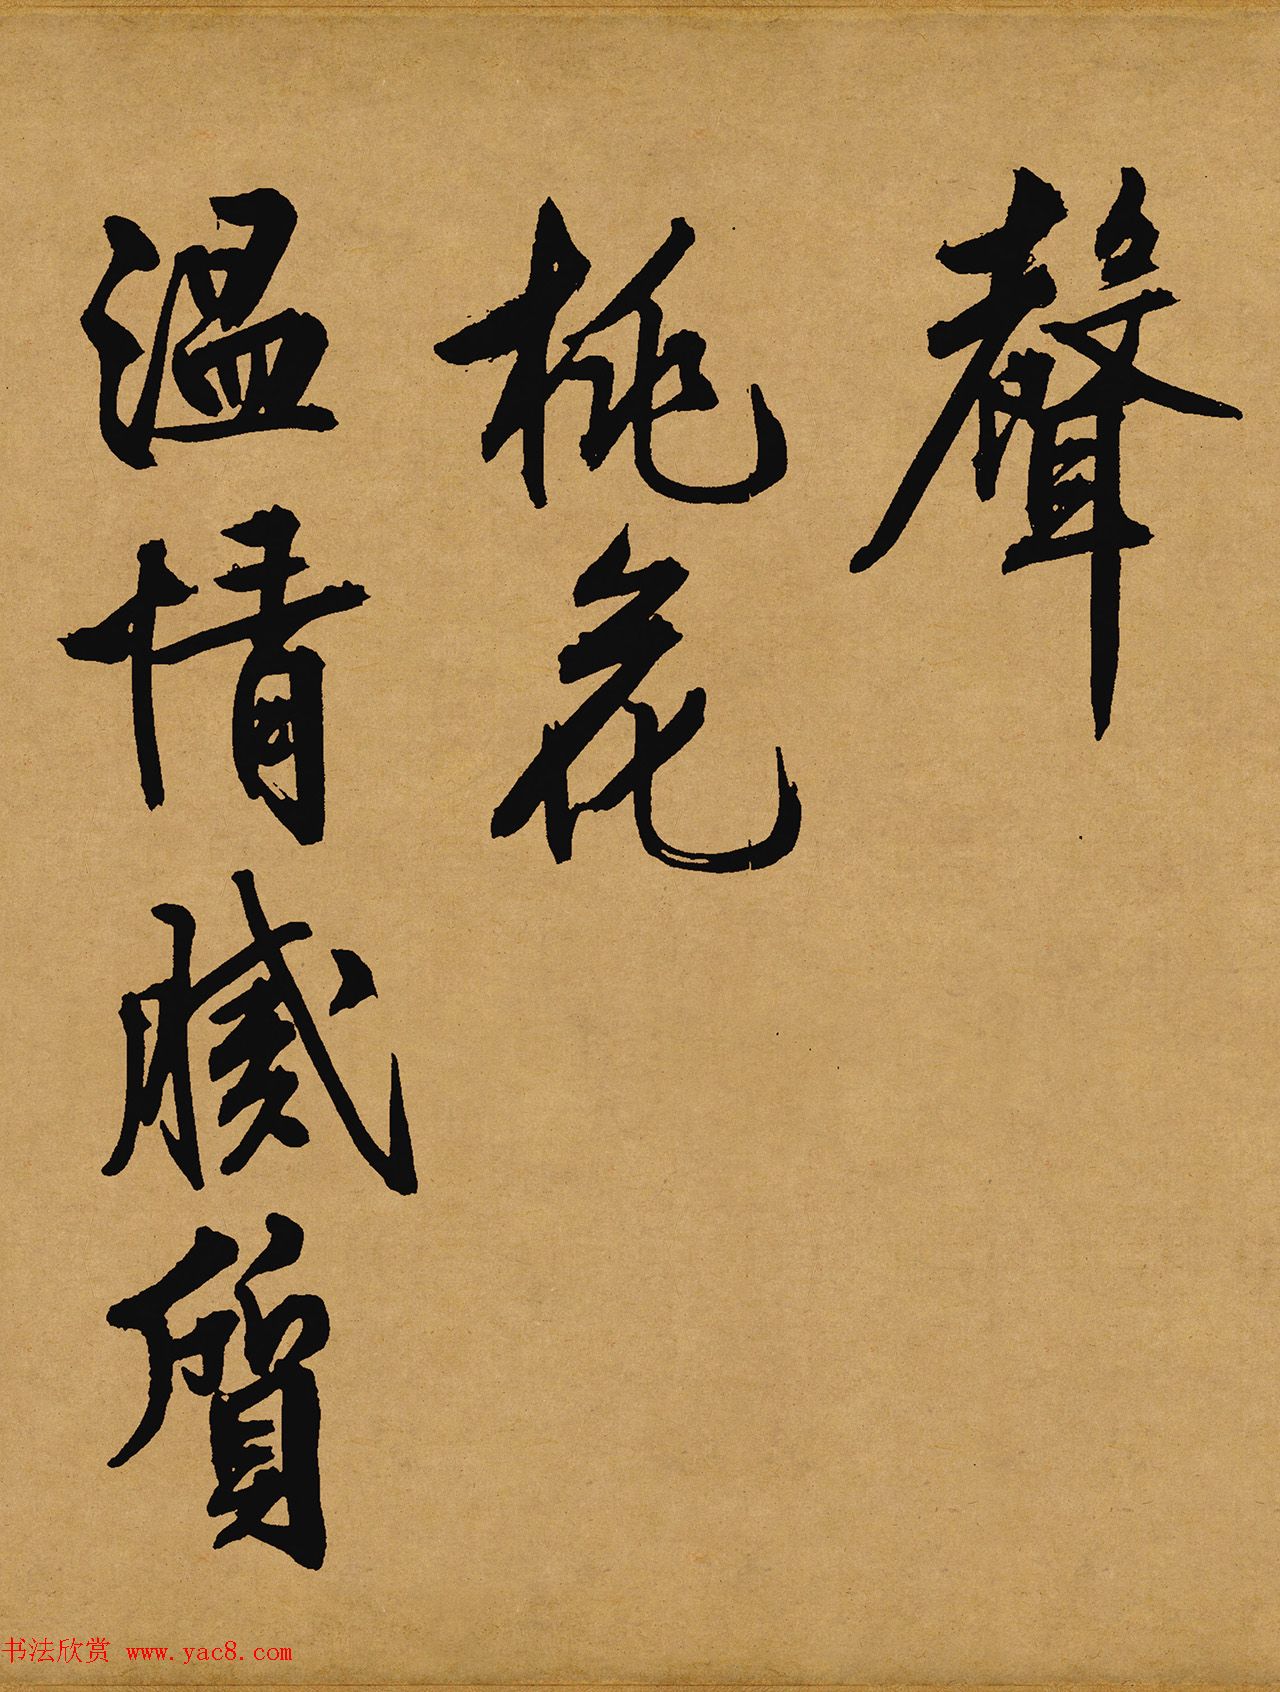 聲
桃花
溫情膩質
书法欣赏 www.yac8.com